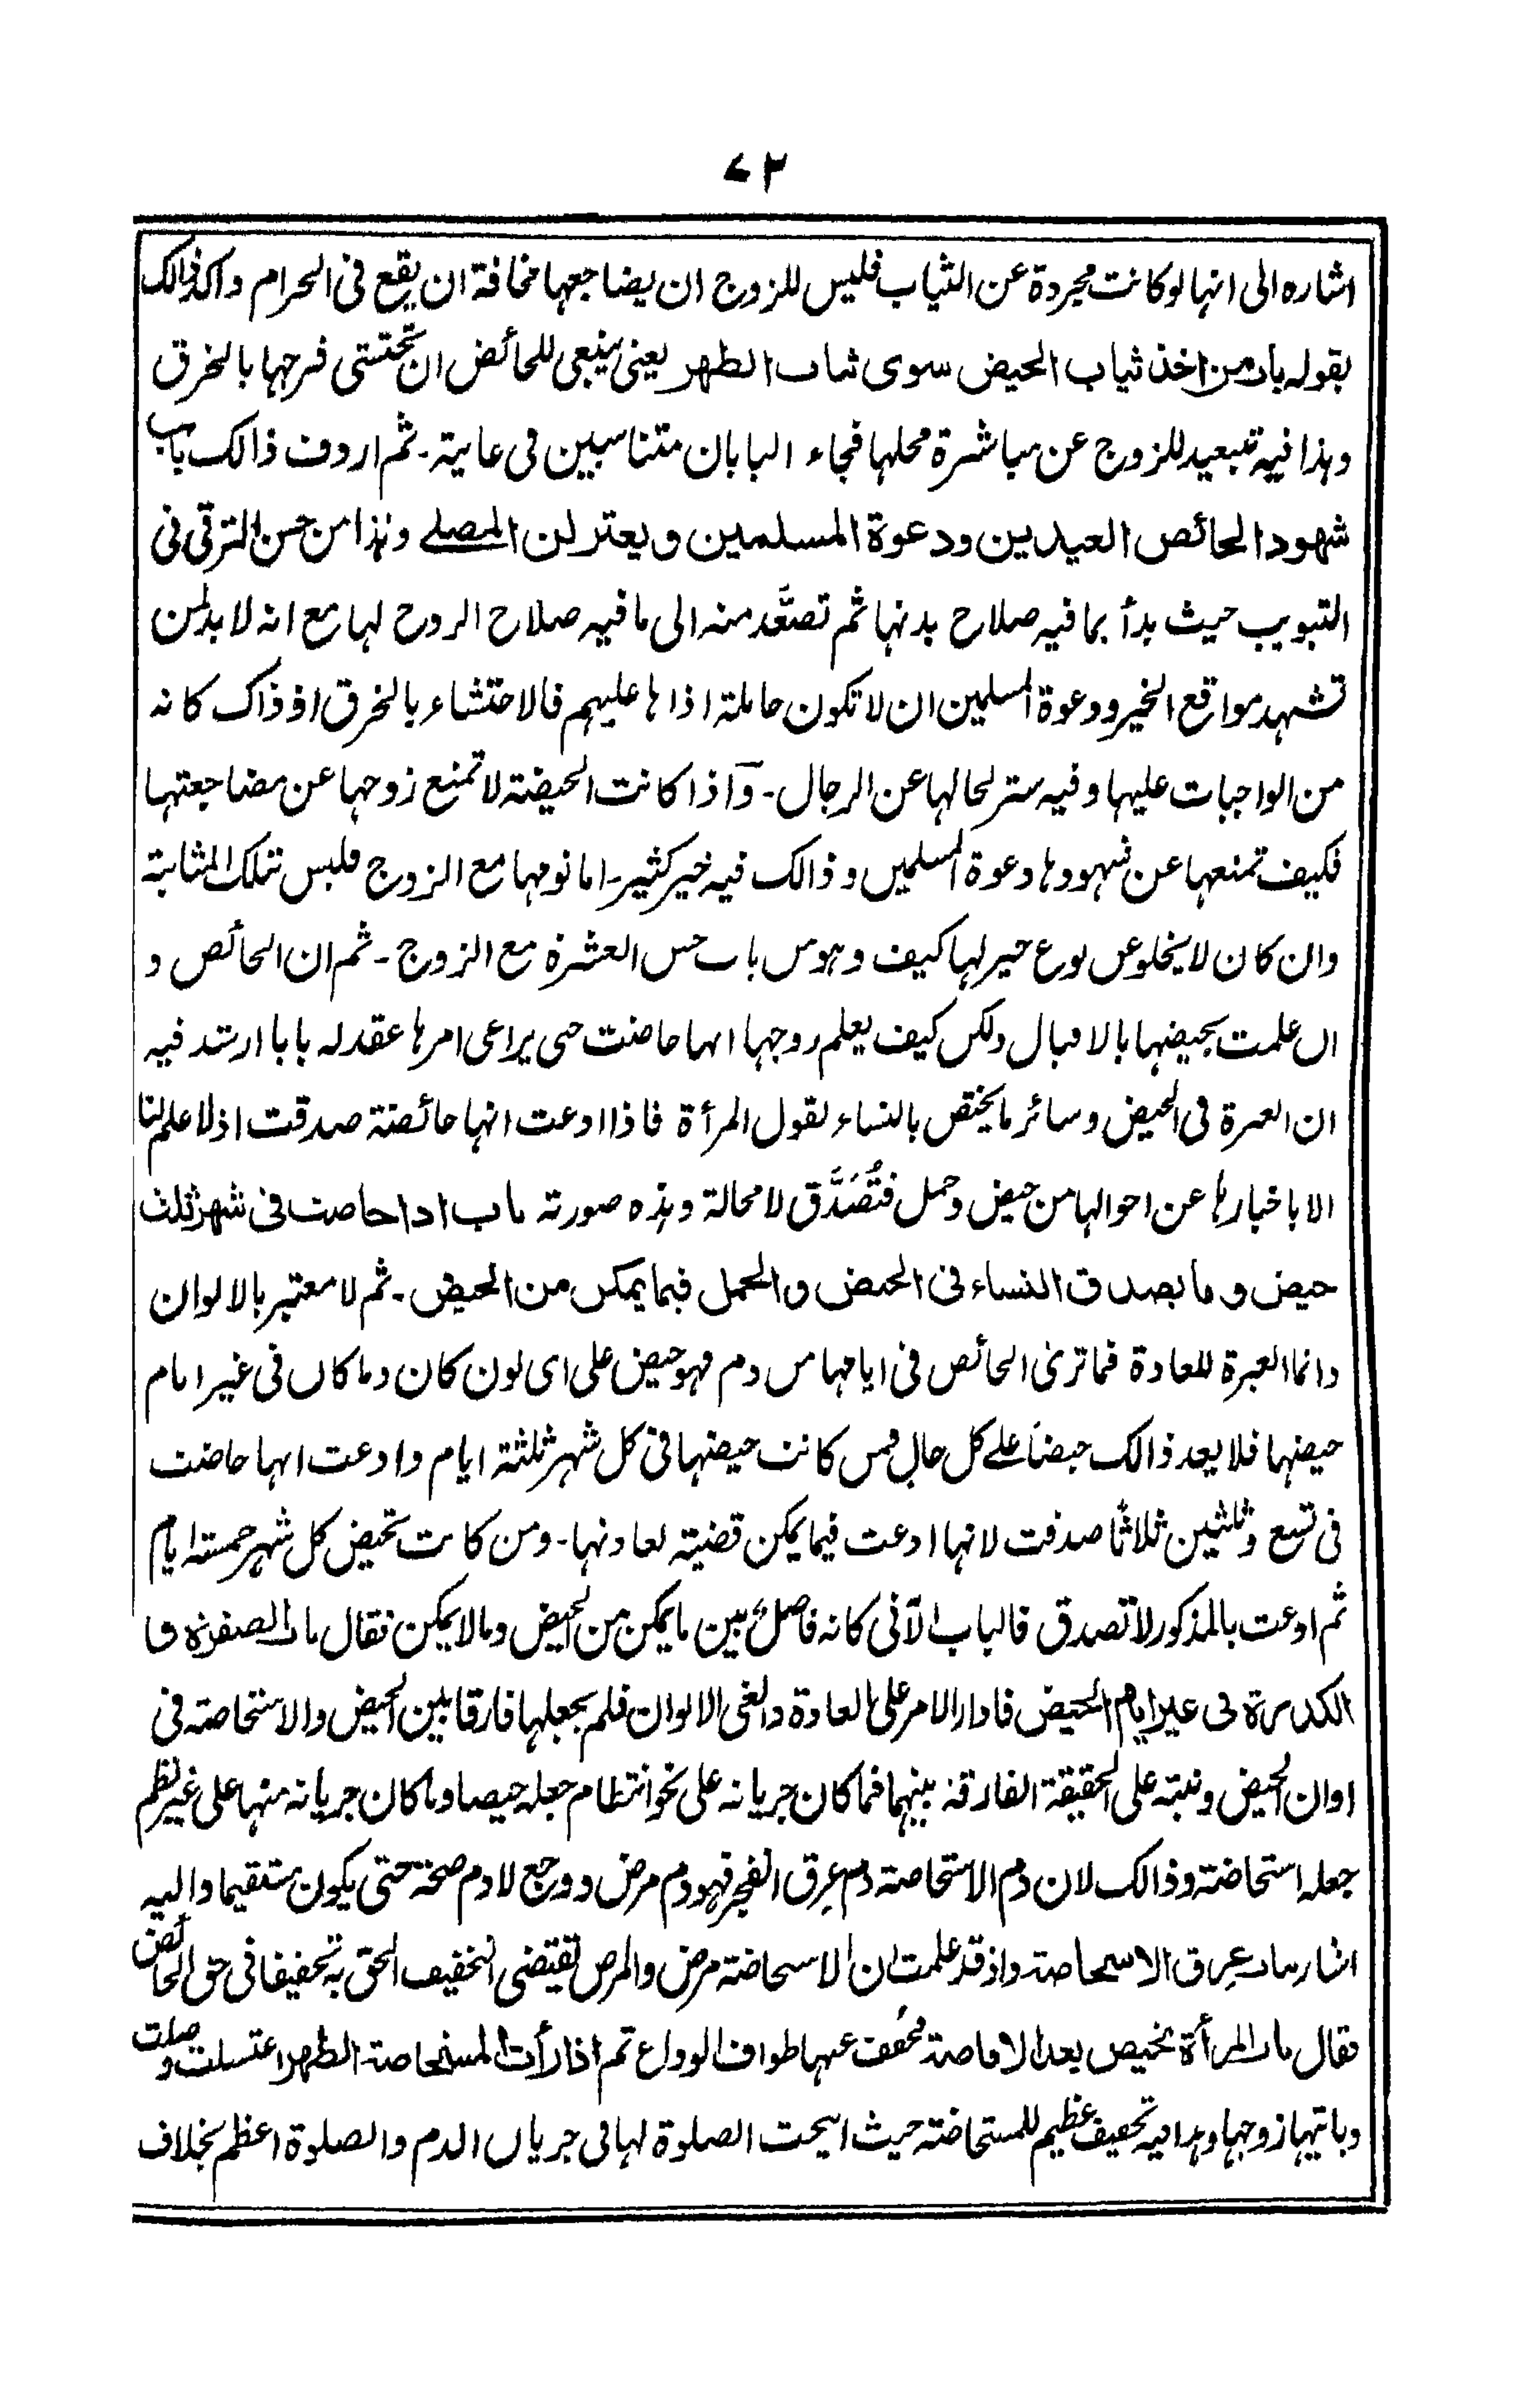 ٧٣
اشاره الى انها لو كانت مجردة عن الثياب فليس للزوج ان يضاجعها مخافة ان يقع فى الحرام واكد ذالك
بقوله باب من اخذ ثياب الحيض سوى ثياب الطهر يعنى ينبغى للحائض ان تحتشى فرجها بالخرق
وهذا فيه تبعيد للزوج عن مباشرة محلها فجاء البابان متناسبين فى غاية - ثم اردف ذالك باب
شهود الحائض العيدين ودعوة المسلمين ويعتزلن المصلے وهذا من حسن الترقى فى
التبويب حيث بدأ بما فيه صلاح بدنها ثم تصعَّد منه الى ما فيه صلاح الروح لها مع انه لا بد لمن
تشهد مواقع الخير ودعوة المسلمين ان لا تكون حاملة اذاها عليهم فالاحتشاء بالخرق اذ ذاك كانه
من الواجبات عليها وفيه ستر لحالها عن الرجال - واذا كانت الحيضة لا تمنع زوجها عن مضاجعتها
فكيف تمنعها عن شهودها دعوة المسلمين وذالك فيه خير كثير - اما نومها مع الزوج فليس بتلك المثابة
وان كان لا يخلو عن نوع خير لها كيف وهو من باب حسن العشرة مع الزوج - ثم ان الحائض و
ان علمت بحيضها بالاقبال ولكن كيف يعلم زوجها انها حاضت حتى يراعى امرها عقد له بابا ارشد فيه
ان العبرة فى الحيض وسائر ما يختص بالنساء لقول المرأة فاذا ادعت انها حائضة صدقت اذ لا علم لنا
الا باخبارها عن احوالها من حيض وحمل فتُصَدَّق لا محالة وهذه صورته باب اذا حاضت فى شهر ثلث
حيض وما يصدق النساء فى الحيض والحمل فيما يمكن من الحيض - ثم لا معتبر بالالوان
وانما العبرة للعادة فما ترى الحائض فى ايامها من دم فهو حيض على اى لون كان وما كان فى غير ايام
حيضها فلا يعد ذالك حيضاً علے كل حال فمن كانت حيضها فى كل شهر ثلثة ايام وادعت انها حاضت
فى تسع وثلثين ثلاثاً صدقت لانها ادعت فيما يمكن قضية لعادتها - ومن كانت تحيض كل شهر خمسة ايام
ثم ادعت بالمذكور لا تصدق فالباب الآتى كانه فاصل بين ما يمكن من الحيض وما لا يمكن فقال باب الصفرة و
الكدرة فى غير ايام الحيض فادار الامر على العادة والغى الالوان فلم يجعلها فارقا بين الحيض والاستحاضة فى
اوان الحيض ونبّه على الحقيقة الفارقة بينهما فما كان جريانه على نحو انتظام جعله حيضا وما كان جريانه منها على غير نظم
جعله استحاضة وذالك لان دم الاستحاضة دم عِرق انفجر فهو دم مرض ووجع لا دم صحة حتى يكون مستقيما واليه
اشار بباب عِرق الاستحاضة واذ قد علمت ان الاستحاضة مرض والمرض يقتضى التخفيف الحق به تخفيفا فى حق الحائض
فقال باب المرأة تحيض بعد الافاضة مخفف عنها طواف الوداع ثم اذا رأت المستحاضة الطهر اغتسلت وصلت
وياتيها زوجها وهذا فيه تخفيف عظيم للمستحاضة حيث ابيحت الصلوة لها فى جريان الدم والصلوة اعظم بخلاف